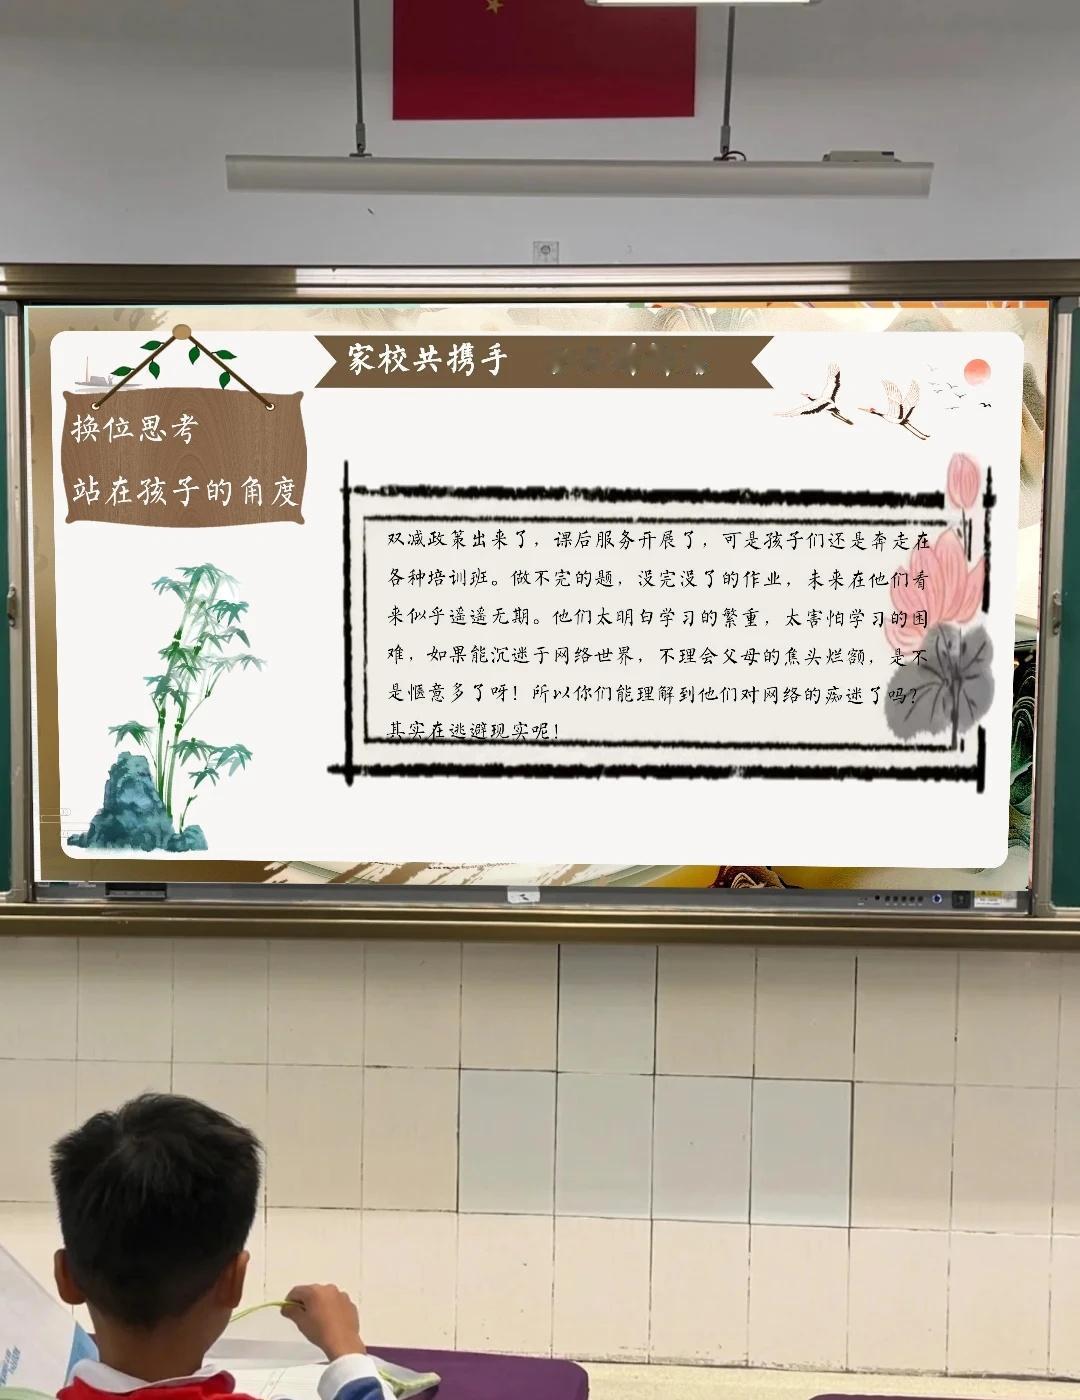 家校共携手
换位思考
站在孩子的角度
双减政策出来了，课后服务开展了，可是孩子们还是奔走在
各种培训班。做不完的题，没完没了的作业，未来在他们看
来似乎遥遥无期。他们太明白学习的繁重，太害怕学习的困
难，如果能沉迷于网络世界，不理会父母的焦头烂额，是不
是惬意多了呀！所以你们能理解到他们对网络的痴迷了吗？
其实在逃避现实呢！